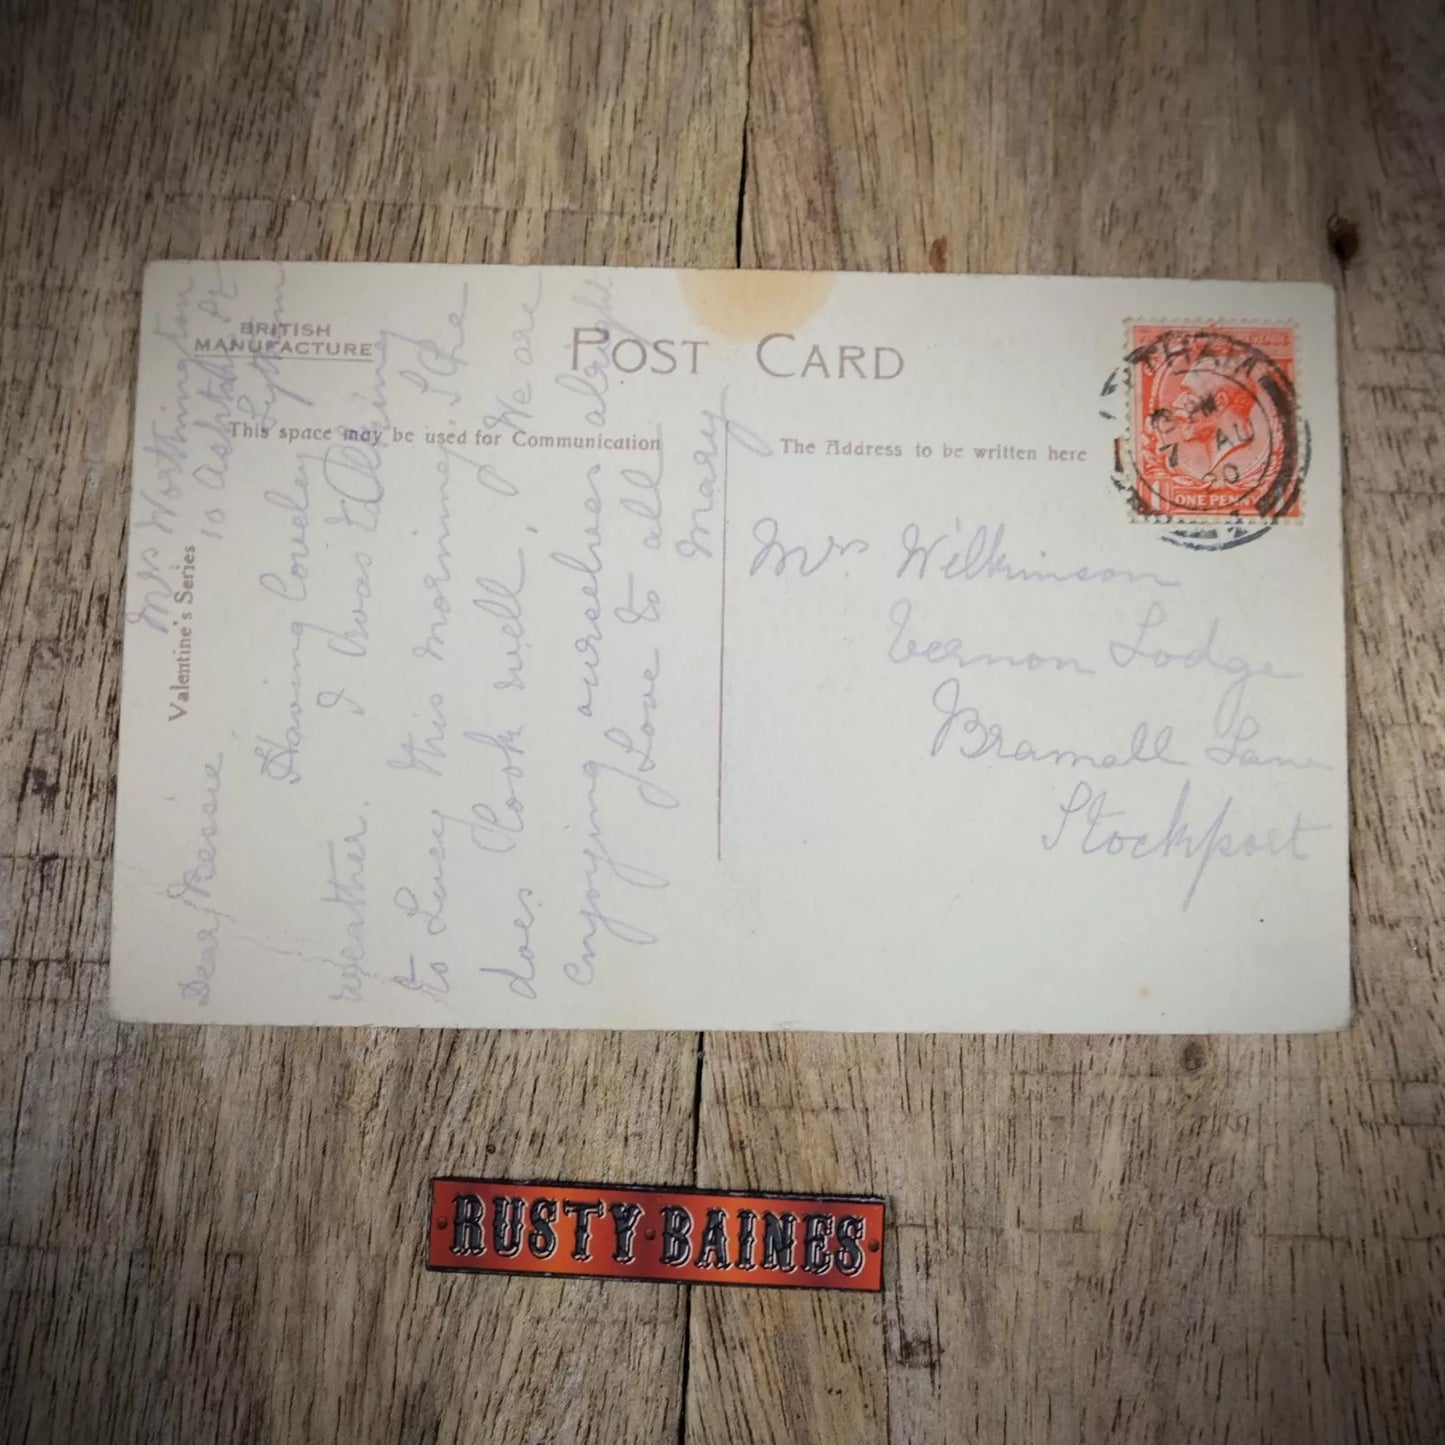 BRITISH
MANUFACTURE
POST CARD
This space may be used for Communication
The Address to be written here
Valentine's Series
Mrs Worthington
10 Ashton St
Lytham
Dear Bessie
Having Loveley
weather. I was talking
to Lucy this morning, She
does look well, We are
enjoying ourselves alright
Love to all
Mary
Mrs Wilkinson
Vernon Lodge
Bramall Lane
Stockport
YTHAM
PM
7 AU
20
ONE PENNY
RUSTY BAINES